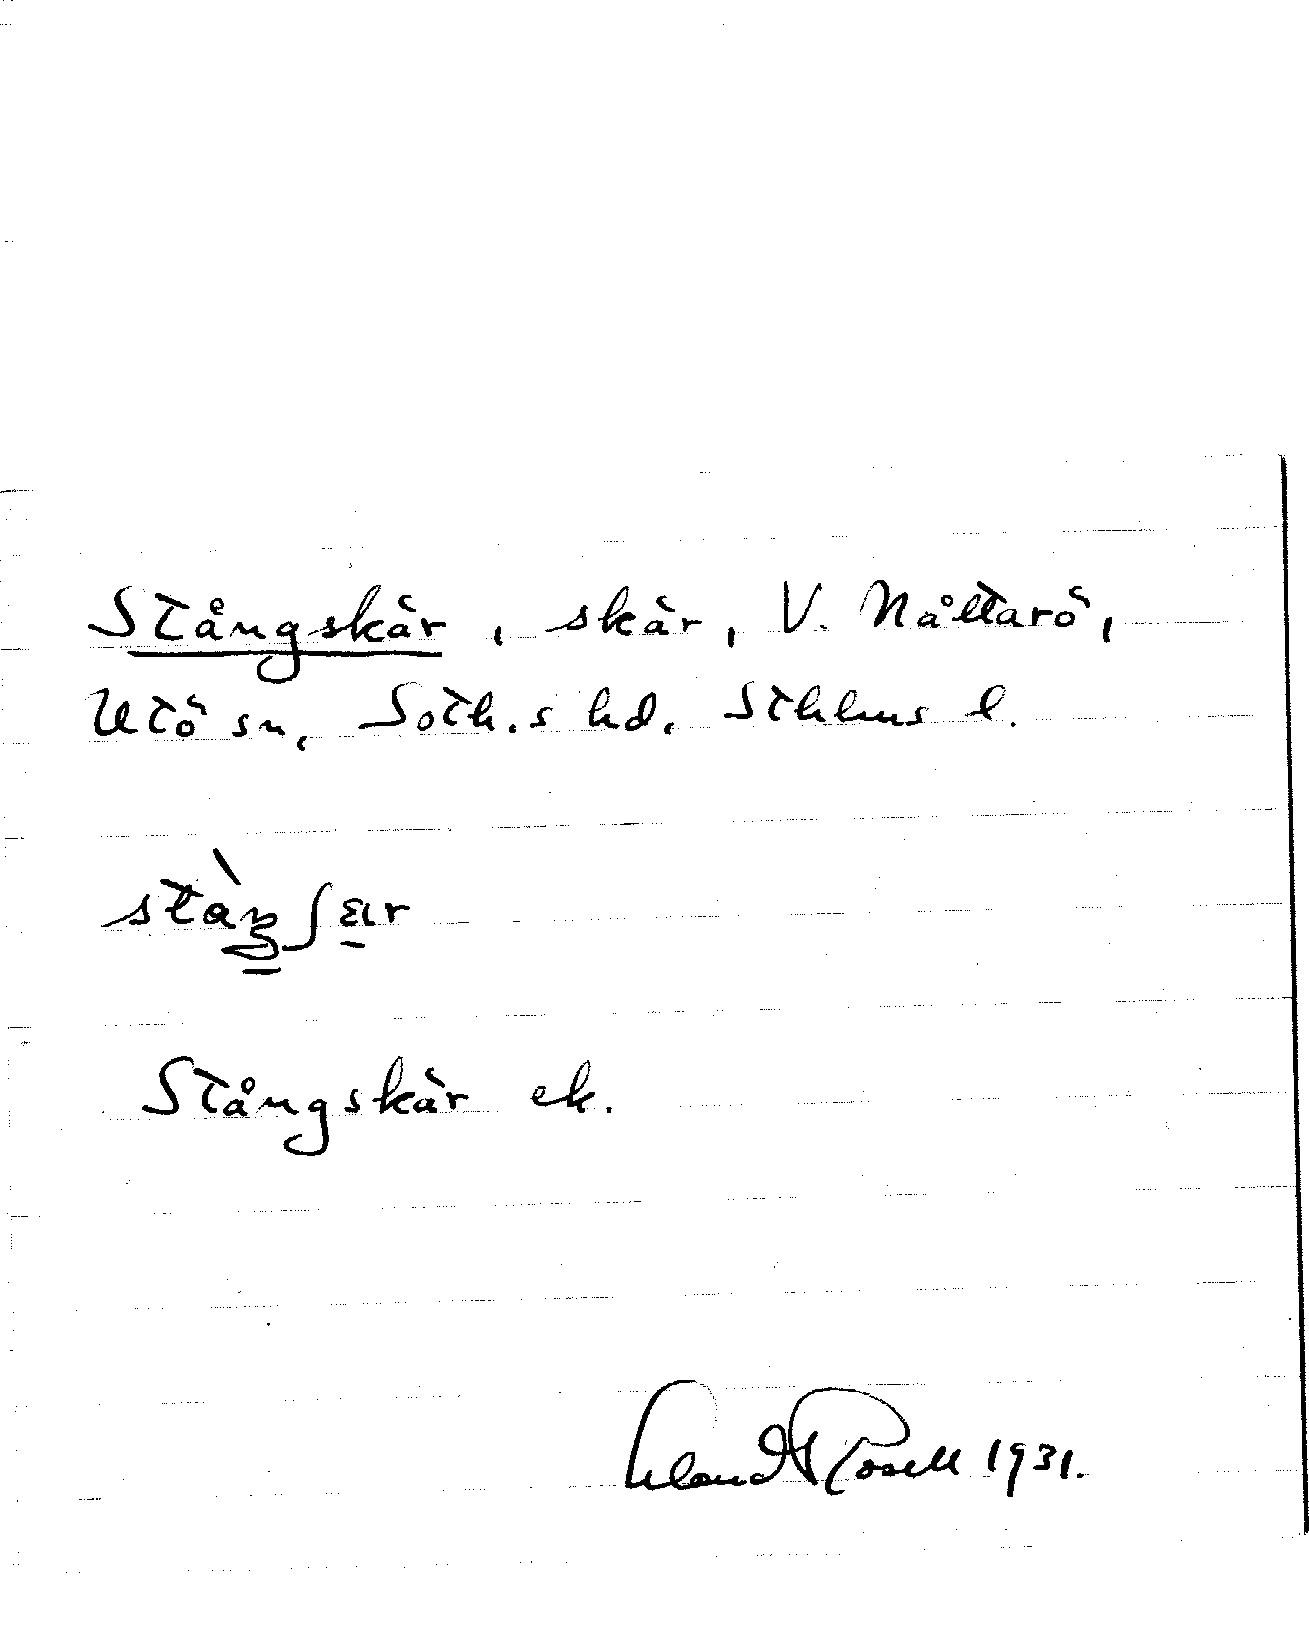 Stångskär, skär, V. Nåttarö,
Utö sn, Soth.s hd. Sthlms l.
Stångskär ek.
Erland Rosell 1931.